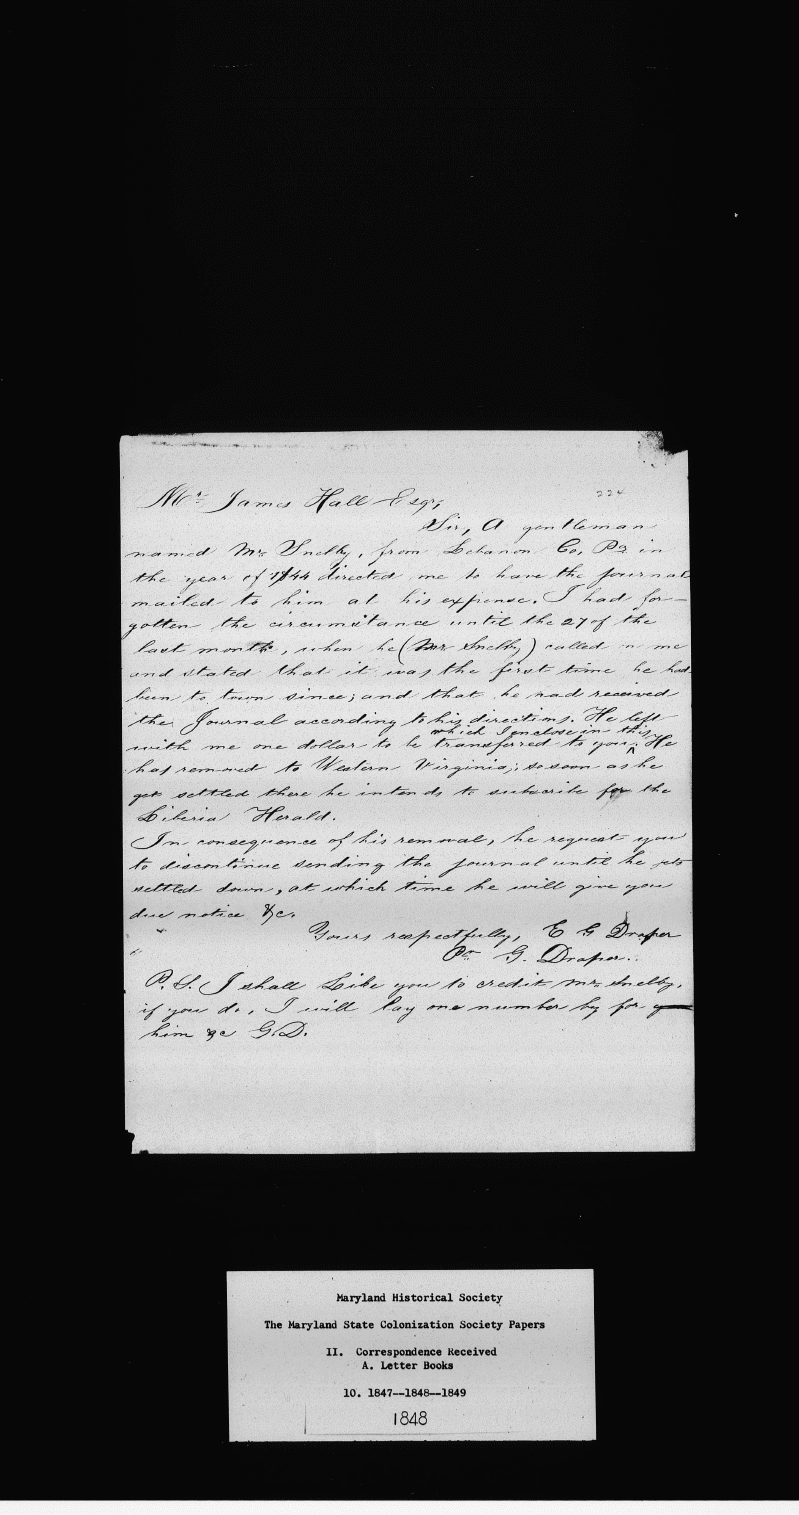 Mr. James Hall Esqr,
224
Sir, A gentleman
named Mr. Snelby, from Lebanon Co, Pa in
the year of 1844 directed me to have the journal
mailed to him at his expense. I had for-
gotten the circumstance until the 27 of the
last month, when he (Mr. Snelby) called on me
and stated that it was the first time he had
been to town since; and that he had received
the Journal according to his directions. He left
which I enclose in this
with me one dollar to be transferred to you ^ He
has removed to Western Virginia; so soon as he
get settled there he intends to subscribe for the
Liberia Herald.
In consequence of his removal, he request you
to discontinue sending the journal until he gets
settled down, at which time he will give you
due notice &c.
Yours respectfully, E G Draper
Pr G. Draper.
P. S. I shall Like you to credit Mr. Snelby,
if you do, I will lay one number by for
him &c G.D.
Maryland Historical Society
The Maryland State Colonization Society Papers
II. Correspondence Received
A. Letter Books
10. 1847--1848--1849
1848